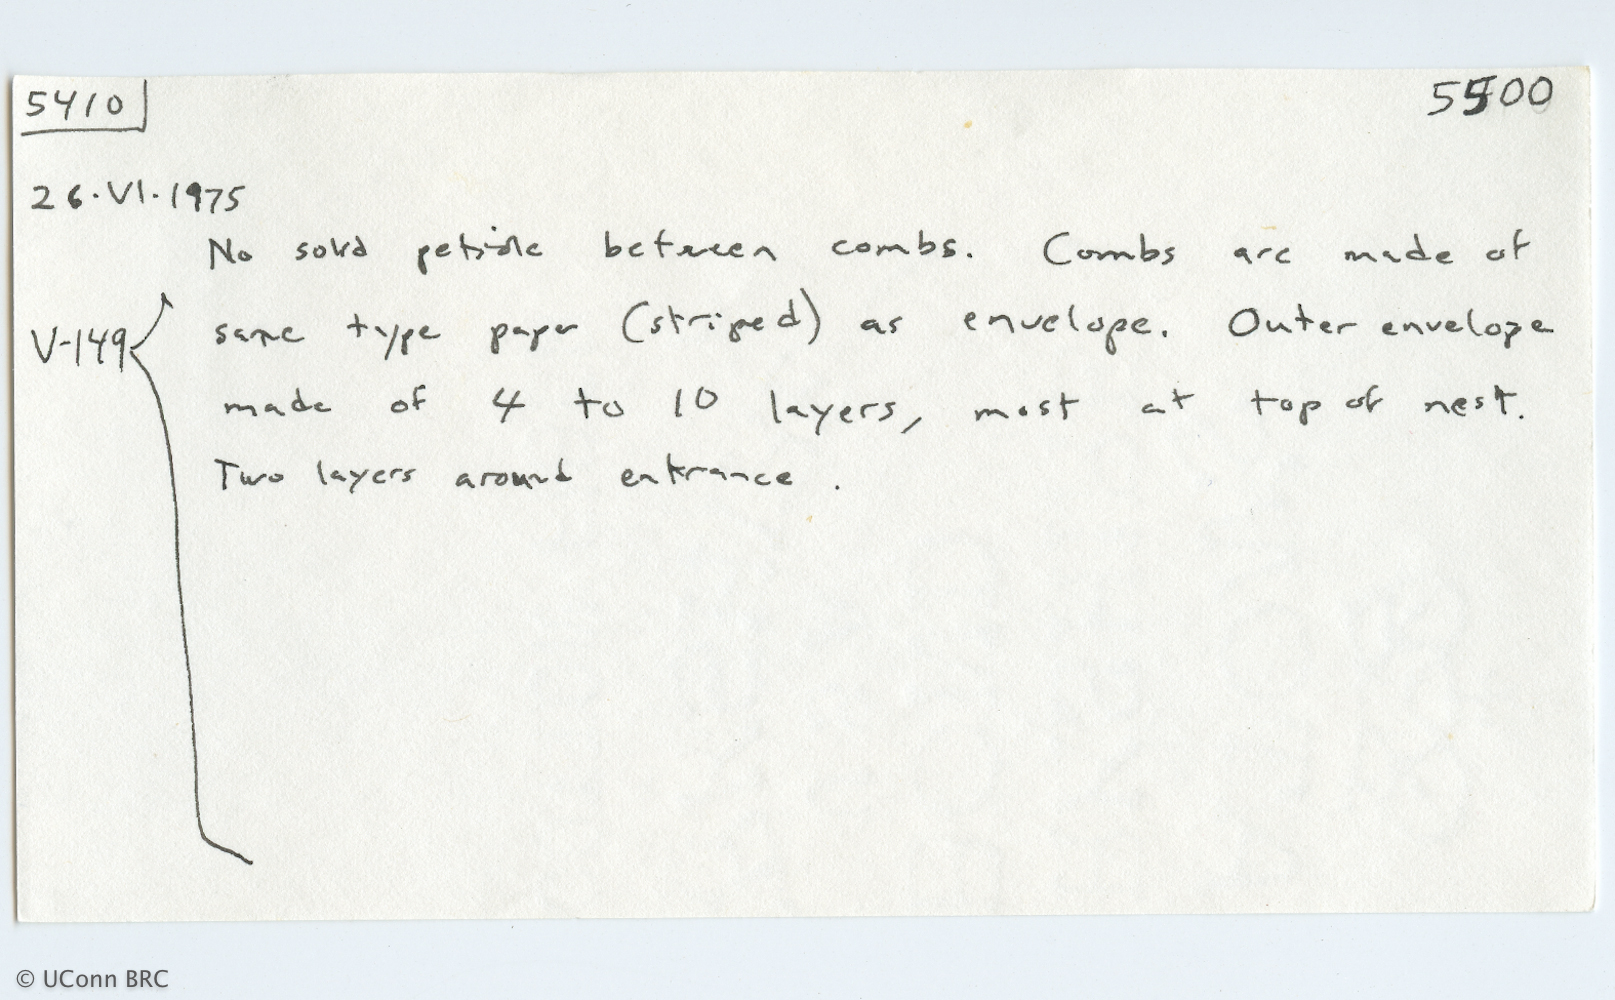 5410
5500
26.VI.1975
No solid petiole between combs. Combs are made of
V-149
same type paper (striped) as envelope. Outer envelope
made of 4 to 10 layers, most at top of nest.
Two layers around entrance.
© UConn BRC